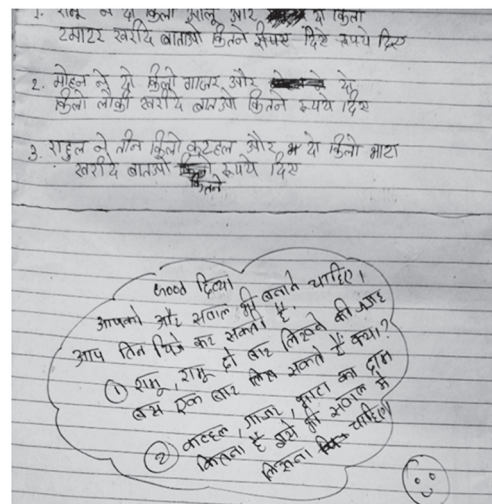 1. रामू ने दो किलो आलू और दो किलो
टमाटर खरीदे बाताओ कितने रूपए दिए रूपये दिए
2. मोहन ने दो किलो गाजर और दो
किलो लौकी खरीदे बाताओ कितने रूपये दिए
3. राहुल ने तीन किलो कटहल और दो किलो भाटा
खरीदे बाताओ
कितने रूपये दिए
Good दिव्या
आपको और सवाल भी बनाने चाहिए।
आप तिन चिजे कर सकती है.
① रामू, रामू दो बार लिखने की जगह
बस एक बार लिख सकते हैं क्या?
② कटहल, गाजर, भाटा का दाम
कितना है इसे भी सवाल में
लिखना चाहिए।